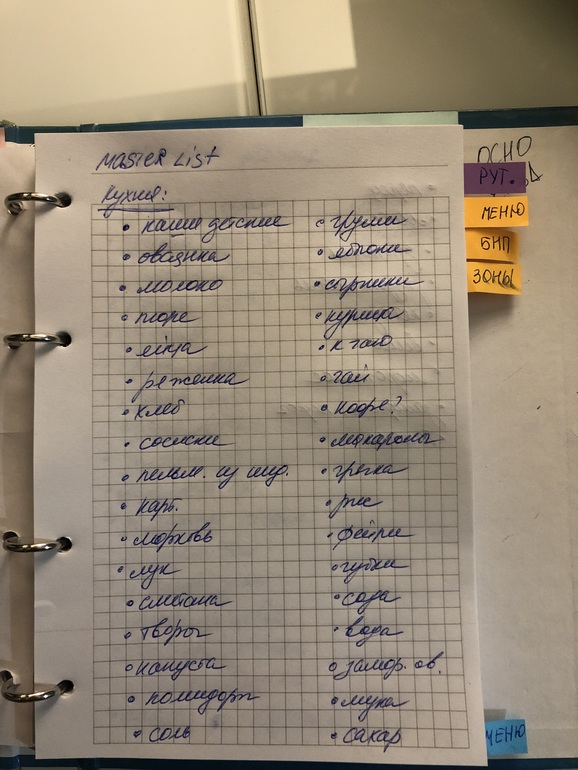 MASTER LIST
Кухня:
• каши детские
• овсянка
• молоко
• пюре
• яйца
• ряженка
• хлеб
• сосиски
• пельм. из инд.
• карт.
• морковь
• лук
• сметана
• творог
• капуста
• помидоры
• соль
• груши
• яблоки
• сырники
• курица
• к чаю
• чай
• кофе?
• макароны
• гречка
• рис
• фейри
• губки
• сода
• вода
• замор. ов.
• мука
• сахар
ОСНО
РУТ.
МЕНЮ
БНП
ЗОНЫ
МЕНЮ